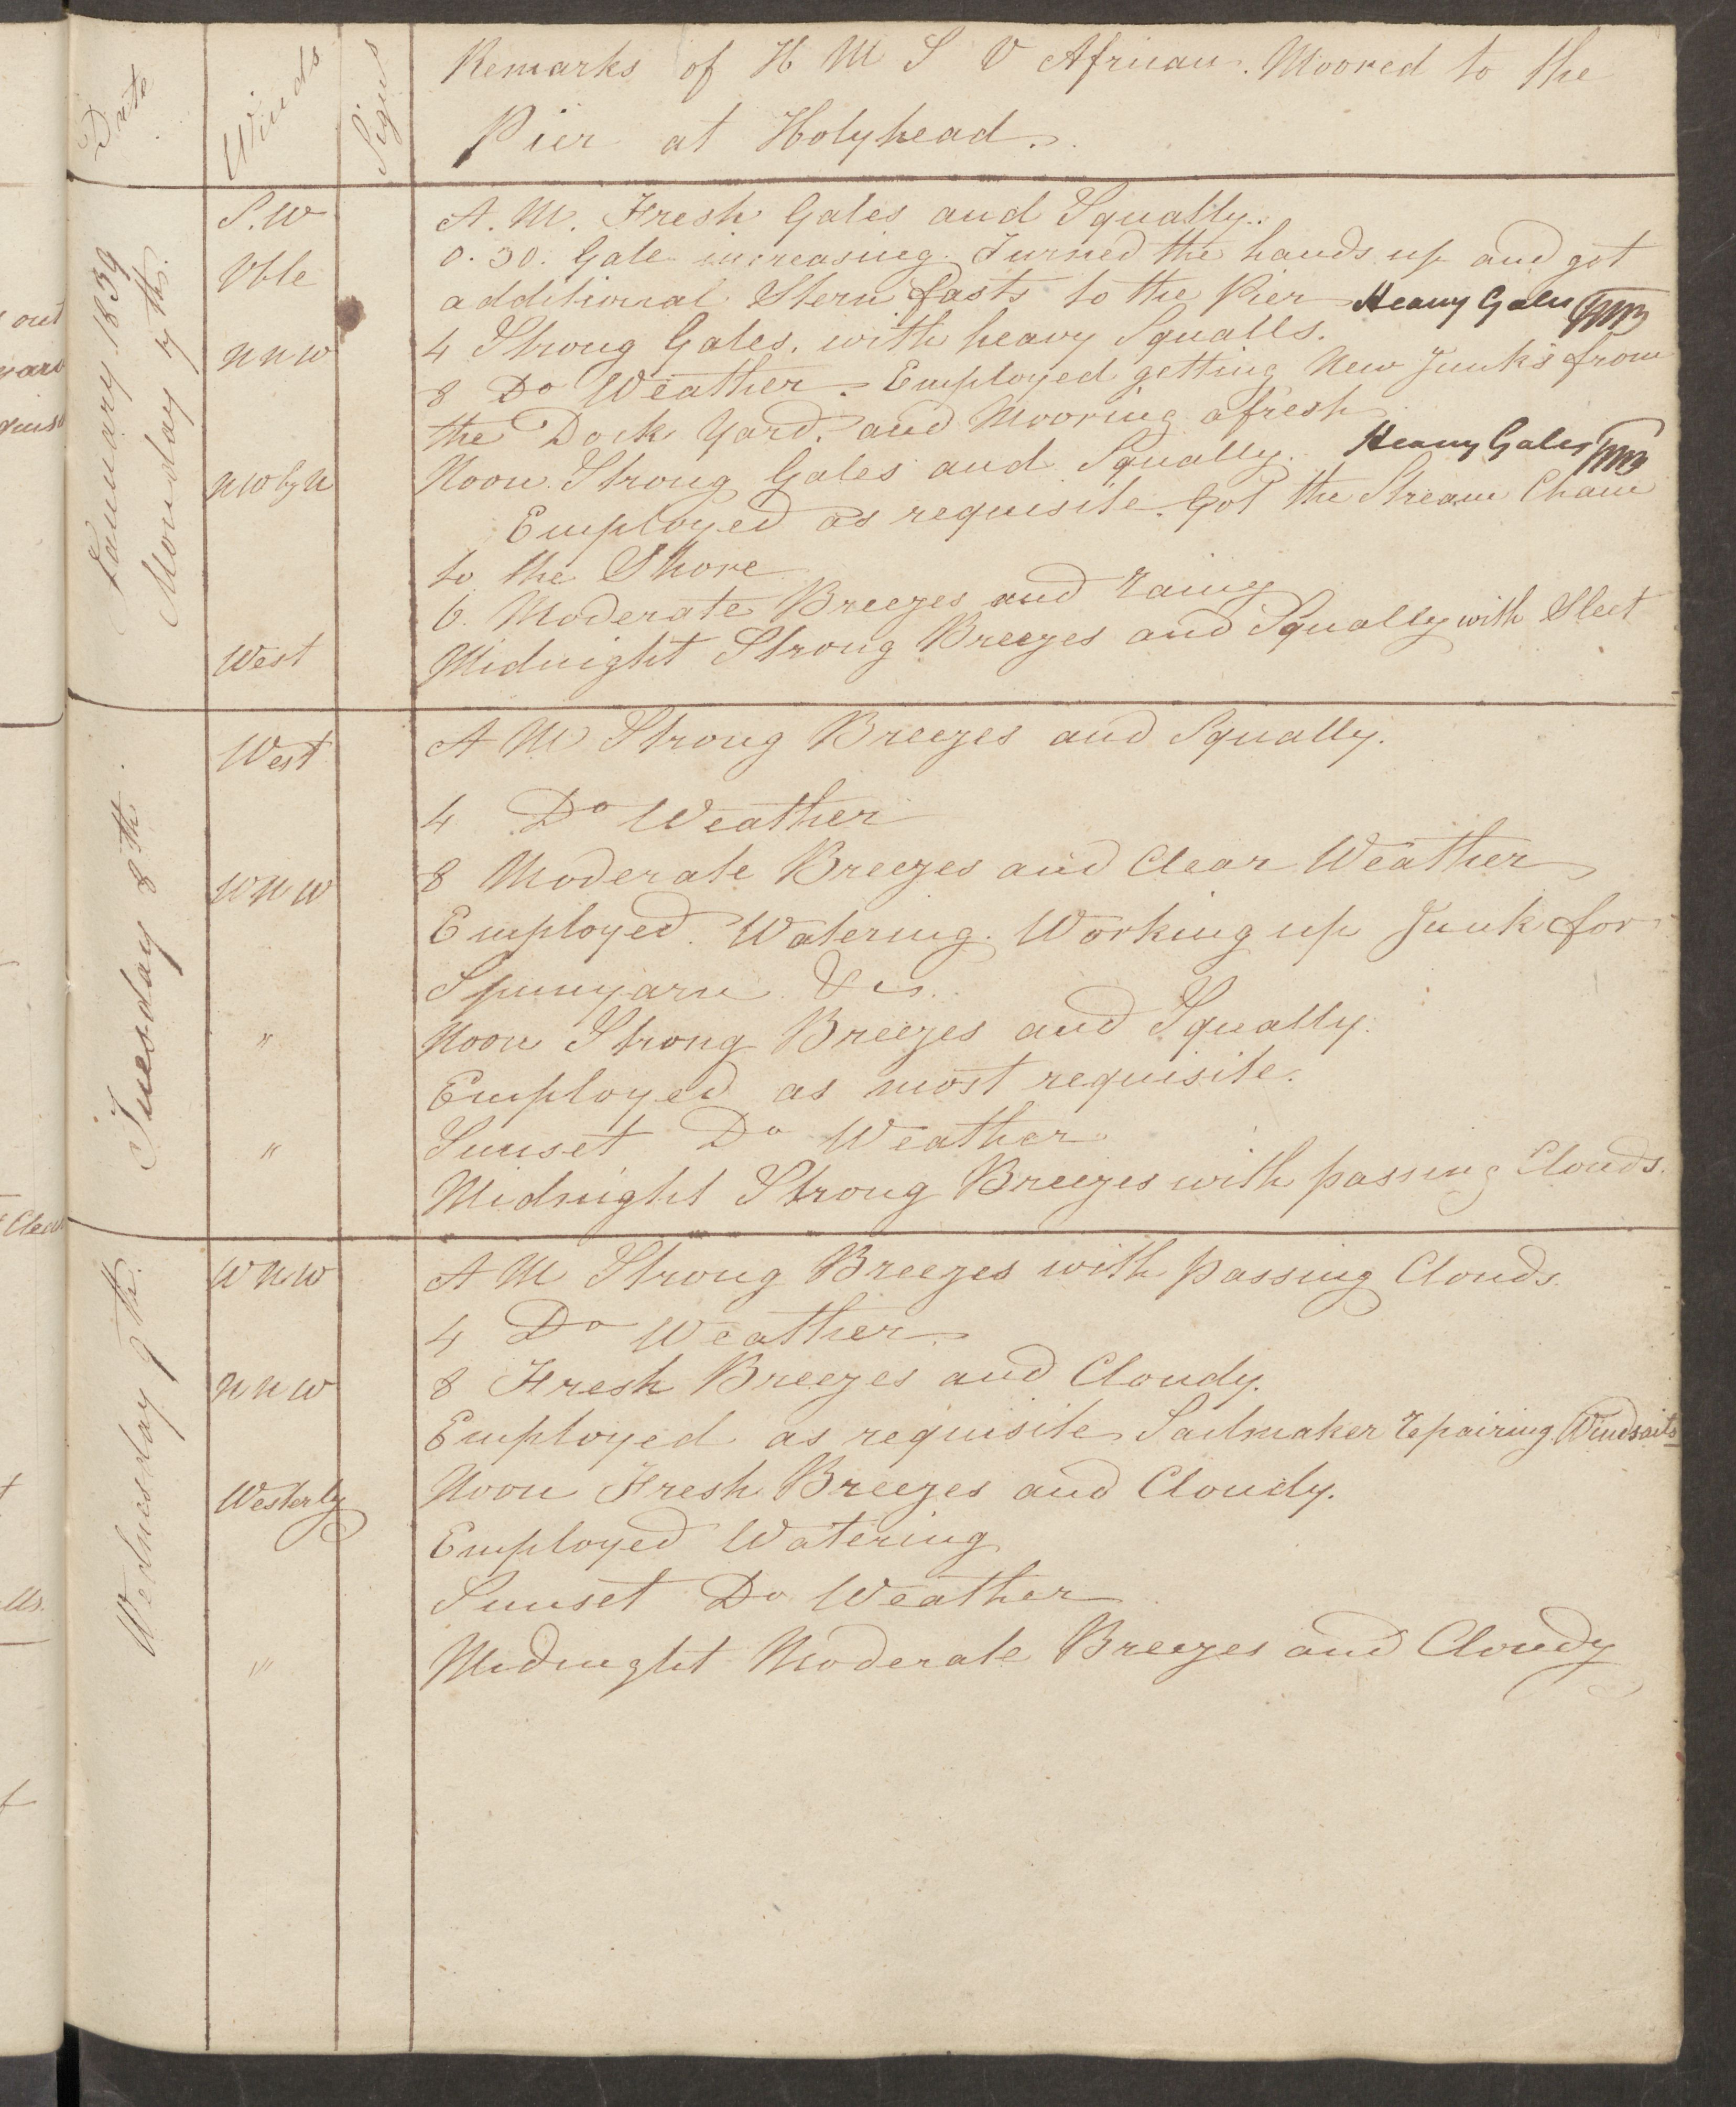 Date
Winds
Signs
Remarks of H M S V African. Moored to the
Pier at Holyhead.
January 1839
Monday 7th.
S.W
A. M. Fresh Gales and Squally.
Vble
0.30. Gale increasing. Turned the hands up and got
additional Stern fasts to the Pier Heavy Gales
N N W
4 Strong Gales. with heavy Squalls.
8 Do Weather. Employed getting New Junks from
the Dock Yard. and Mooring afresh
NW by N
Noon. Strong Gales and Squally. Heavy Gales
Employed as requisite. Got the Stream Chain
to the Shore
6. Moderate Breezes and rainy
West
Midnight Strong Breezes and Squally with Sleet
Tuesday 8th.
West
A M Strong Breezes and Squally.
4 Do Weather
W N W
8 Moderate Breezes and Clear Weather
Employed. Watering. Working up Junk for
Spunyarn &c.
"
Noon Strong Breezes and Squally.
Employed as most requisite.
"
Sunset Do Weather.
Midnight Strong Breezes with passing Clouds.
Wednesday 9th.
W N W
A M Strong Breezes with passing Clouds.
4 Do Weather.
N N W
8 Fresh Breezes and Cloudy.
Employed as requisite Sailmaker repairing Windsails
Westerly
Noon Fresh Breezes and Cloudy.
Employed Watering
Sunset Do Weather
"
Midnght Moderate Breezes and Cloudy